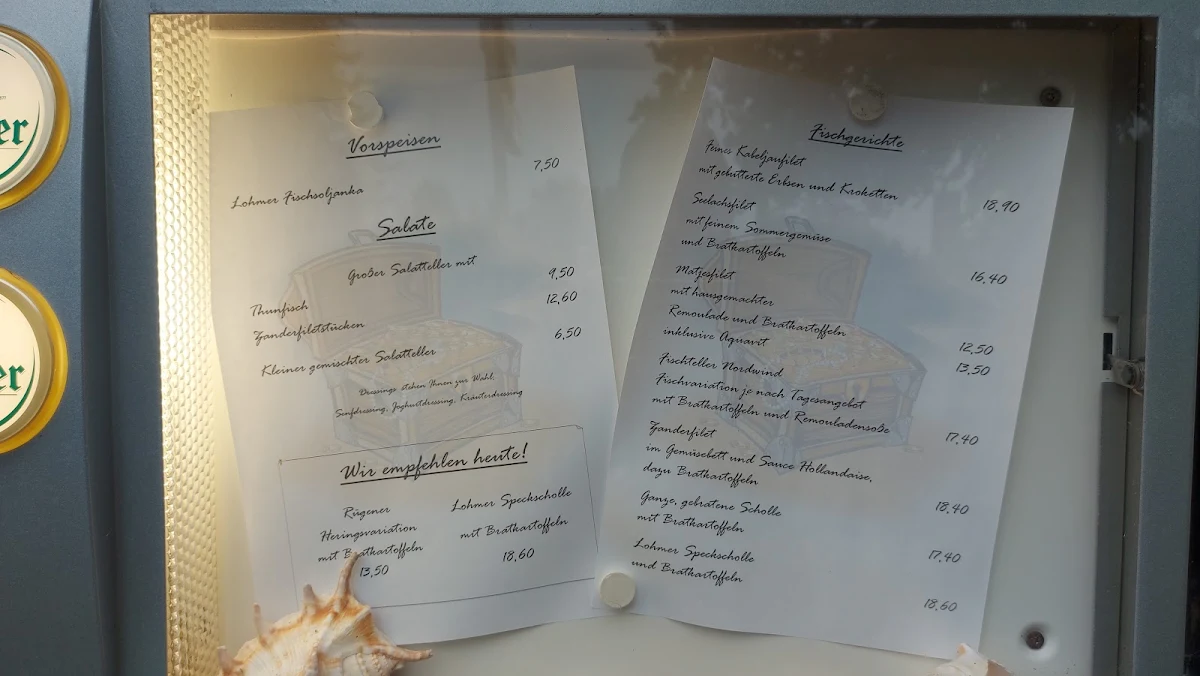 er
er
Vorspeisen
7,50
Lohmer Fischsoljanka
Salate
Großer Salatteller mit
9,50
Thunfisch
12,60
Zanderfiletstücken
6,50
Kleiner gemischter Salatteller
Dressings stehen Ihnen zur Wahl:
Senfdressing, Joghurtdressing, Kräuterdressing
Wir empfehlen heute!
Rügener
Heringsvariation
mit Bratkartoffeln
13,50
Lohmer Speckscholle
mit Bratkartoffeln
18,60
Fischgerichte
Feines Kabeljaufilet
mit gebutterte Erbsen und Kroketten
18,90
Seelachsfilet
mit feinem Sommergemüse
und Bratkartoffeln
16,40
Matjesfilet
mit hausgemachter
Remoulade und Bratkartoffeln
inklusive Aquavit
12,50
13,50
Fischteller Nordwind
Fischvariation je nach Tagesangebot
mit Bratkartoffeln und Remouladensoße
17,40
Zanderfilet
im Gemüsebett und Sauce Hollandaise,
dazu Bratkartoffeln
18,40
Ganze, gebratene Scholle
mit Bratkartoffeln
17,40
Lohmer Speckscholle
und Bratkartoffeln
18,60